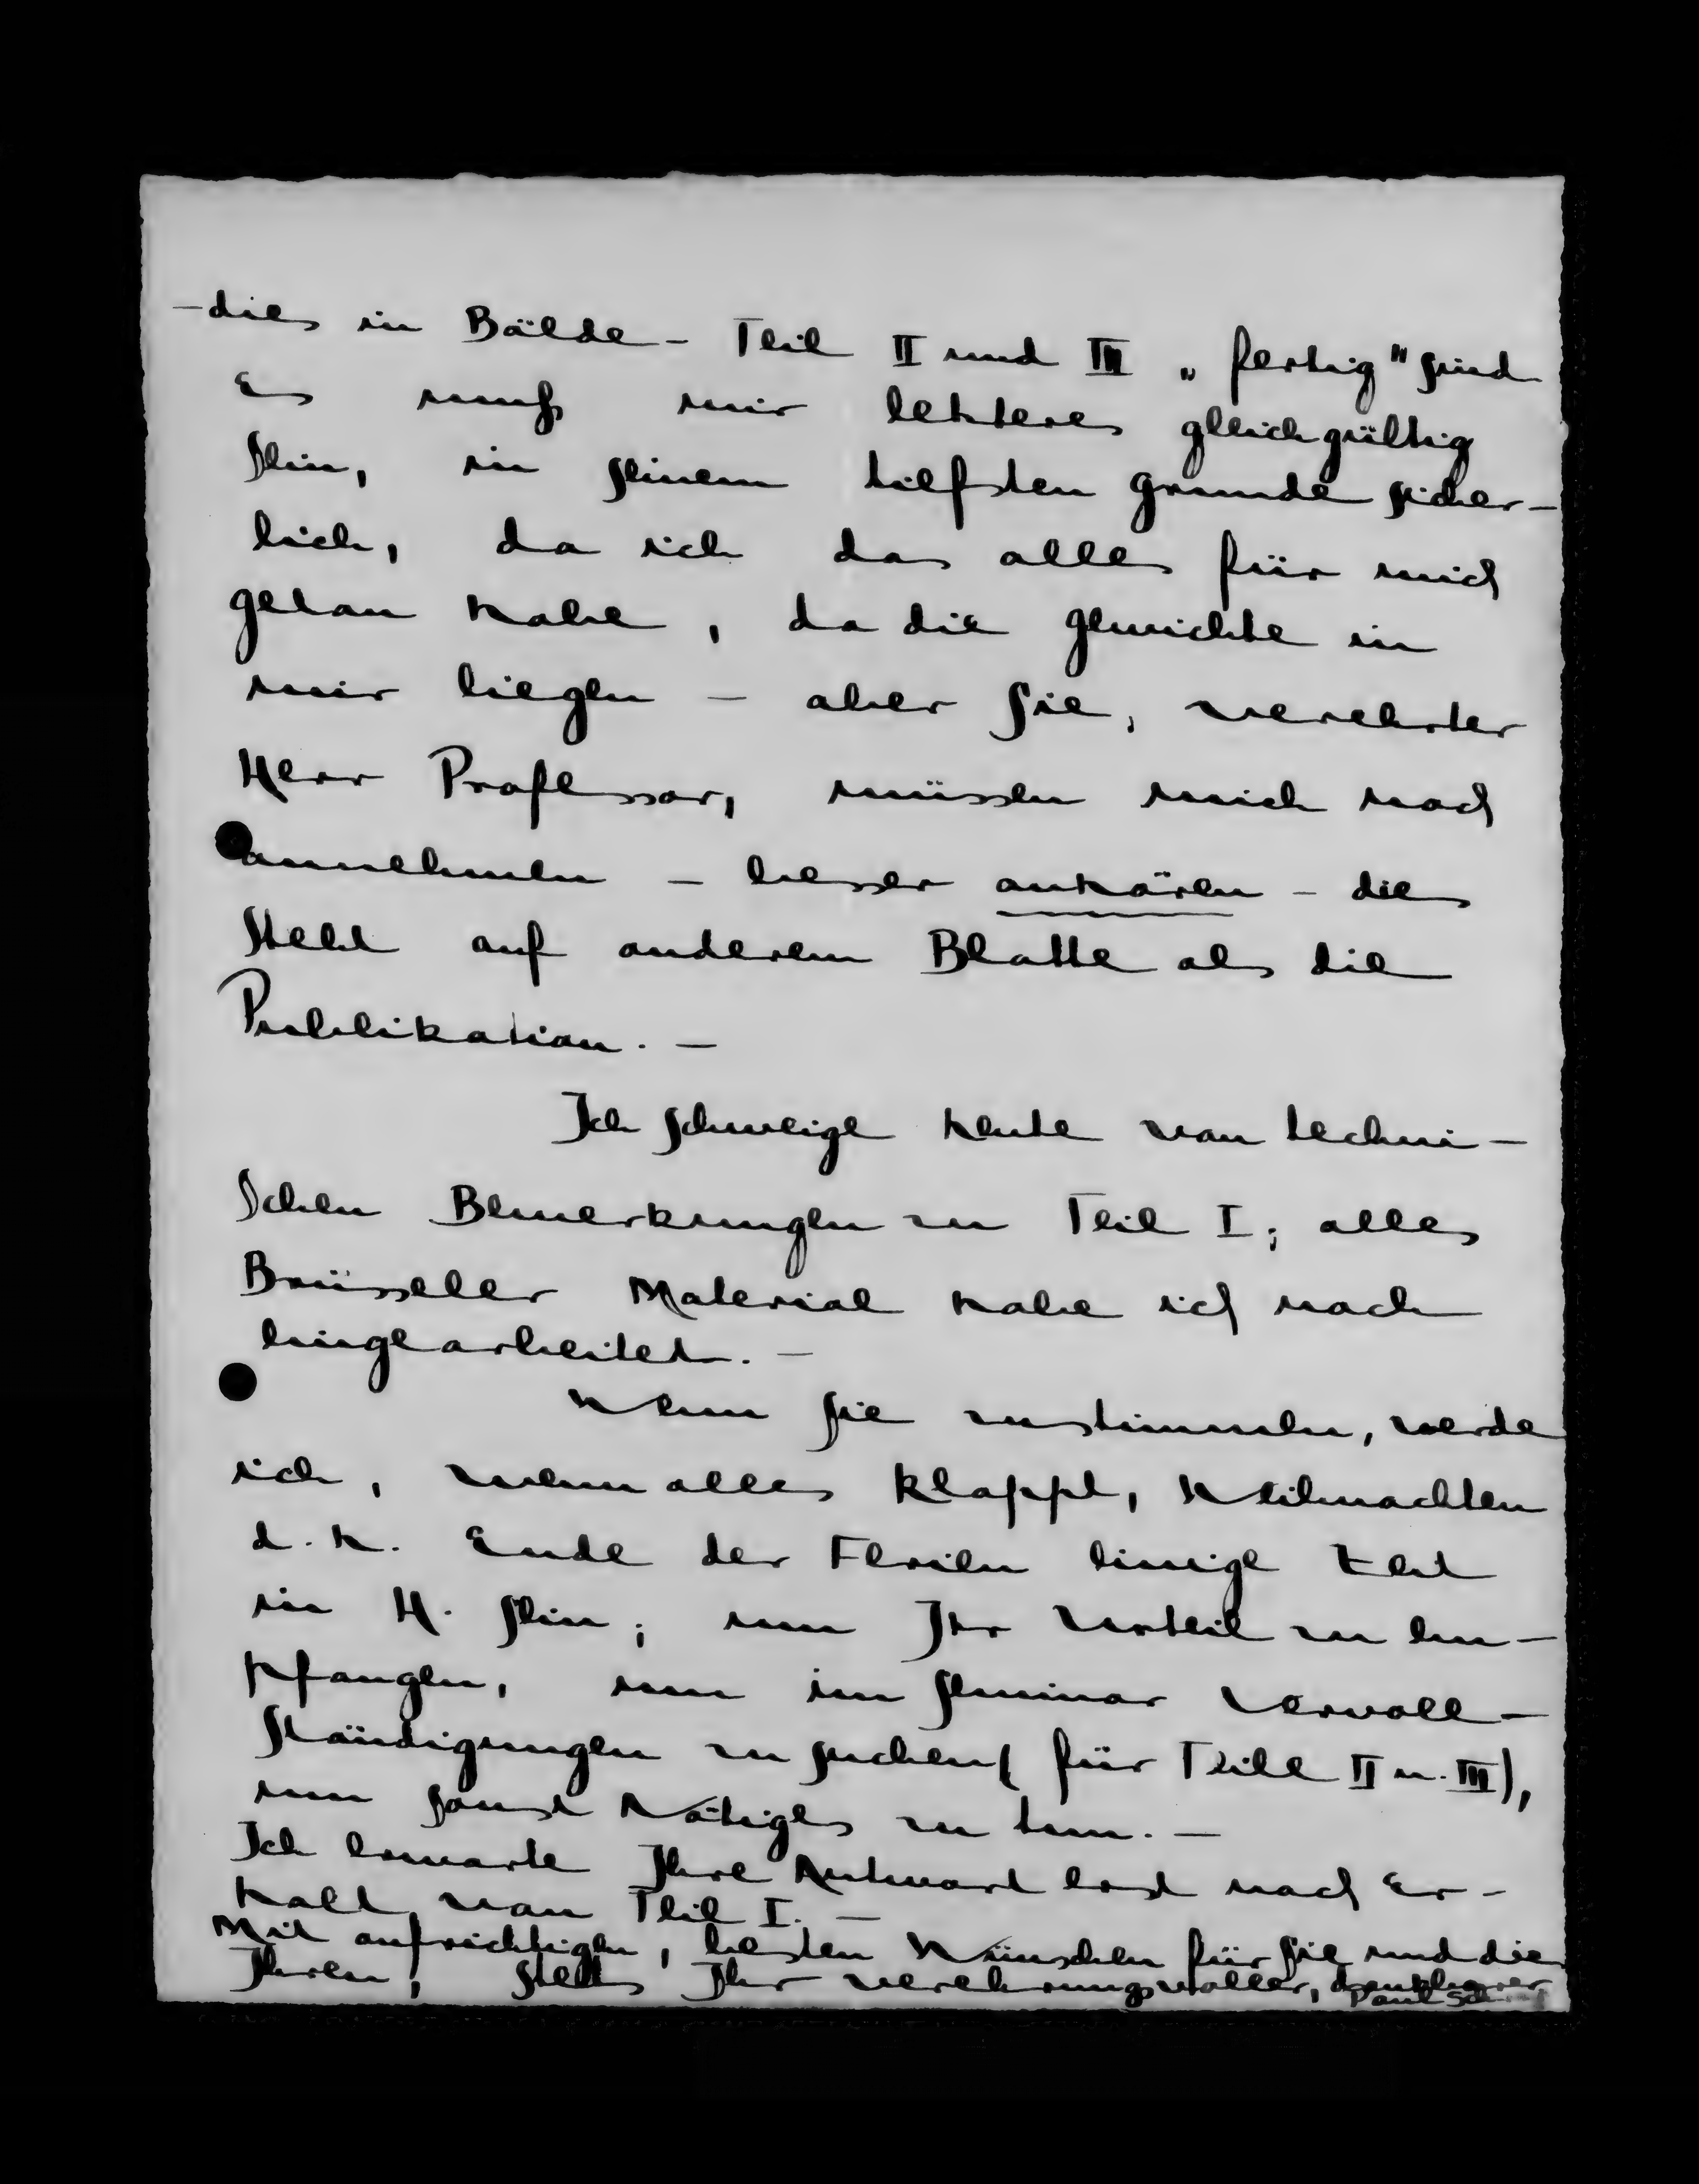 –dies in Bälde – Teil II und III „fertig" sind
Es muß mir letzteres gleichgültig
sein, in seinem tiefsten Grunde sicher–
lich, da ich das alles für mich
getan habe, da die Gewichte in
mir liegen – aber Sie, verehrter
Herr Professor, müssen mich noch
annehmen – besser anhören – dies
steht auf anderem Blatte als die
Publikation. –
Ich schweige heute von techni–
schen Bemerkungen zu Teil I; alles
Brüsseler Material habe ich noch
eingearbeitet. –
Wenn Sie zustimmen, werde
ich, wenn alles klappt, Weihnachten
d. h. Ende der Ferien einige Zeit
in H. sein; um Ihr Urteil zu em–
pfangen, um im Seminar Vervoll–
ständigungen zu suchen (für Teile II u. III),
um sonst Nötiges zu tun. –
Ich erwarte Ihre Antwort erst nach Er–
halt von Teil I. –
Mit aufrichtigen, besten Wünschen für Sie und die
Ihren, stets Ihr verehrungsvoller, dankbarer
Paul